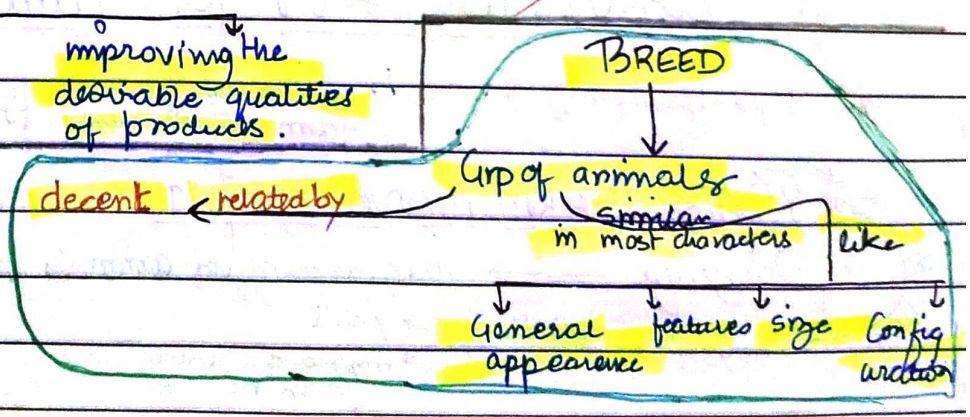 improving the
desirable qualities
of products.
BREED
Grp of animals
decent
related by
similar
in most characters
like
General
appearence
features
size
Config
uration